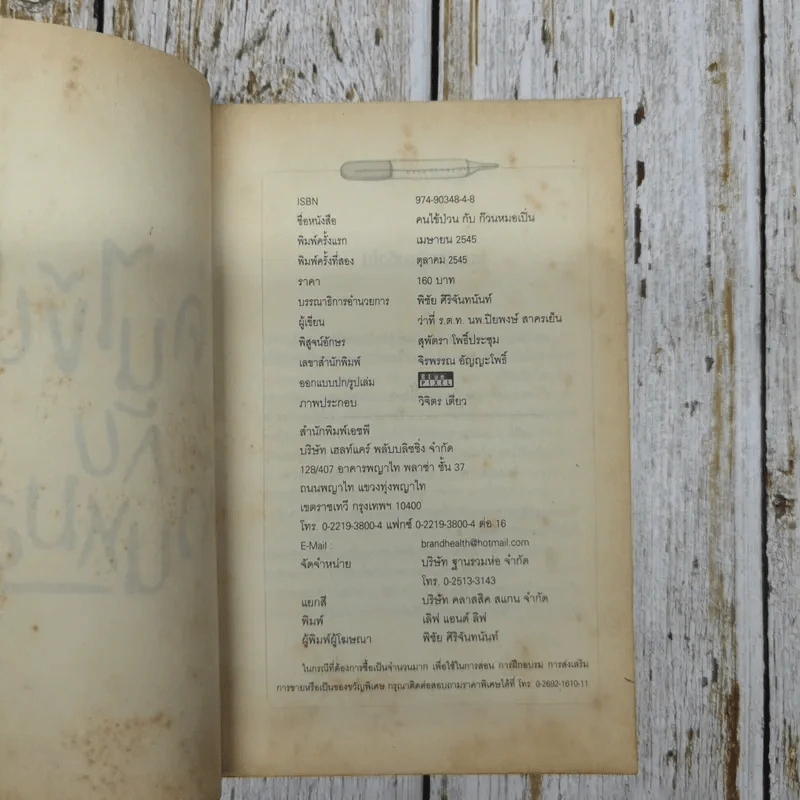 ISBN 974-90348-4-8
ชื่อหนังสือ คนไข้ป่วน กับ ก๊วนหมอเปิ่น
พิมพ์ครั้งแรก เมษายน 2545
พิมพ์ครั้งที่สอง ตุลาคม 2545
ราคา 160 บาท
บรรณาธิการอำนวยการ พิชัย ศิริจันทนันท์
ผู้เขียน ว่าที่ ร.ต.ท. นพ.ปิยพงษ์ สาครเย็น
พิสูจน์อักษร สุพัตรา โพธิ์ประชุม
เลขาสำนักพิมพ์ จิรพรรณ อัญญะโพธิ์
ออกแบบปก/รูปเล่ม Blue PIXEL
ภาพประกอบ วิจิตร เตียว
สำนักพิมพ์เอชพี
บริษัท เฮลท์แคร์ พลับบลิชชิ่ง จำกัด
128/407 อาคารพญาไท พลาซ่า ชั้น 37
ถนนพญาไท แขวงทุ่งพญาไท
เขตราชเทวี กรุงเทพฯ 10400
โทร. 0-2219-3800-4 แฟกซ์ 0-2219-3800-4 ต่อ 16
E-Mail : brandhealth@hotmail.com
จัดจำหน่าย บริษัท ฐานรวมห่อ จำกัด
โทร. 0-2513-3143
แยกสี บริษัท คลาสสิค สแกน จำกัด
พิมพ์ เลิฟ แอนด์ ลิฟ
ผู้พิมพ์ผู้โฆษณา พิชัย ศิริจันทนันท์
ในกรณีที่ต้องการซื้อเป็นจำนวนมาก เพื่อใช้ในการสอน การฝึกอบรม การส่งเสริม
การขายหรือเป็นของขวัญพิเศษ กรุณาติดต่อสอบถามราคาพิเศษได้ที่ โทร. 0-2692-1610-11